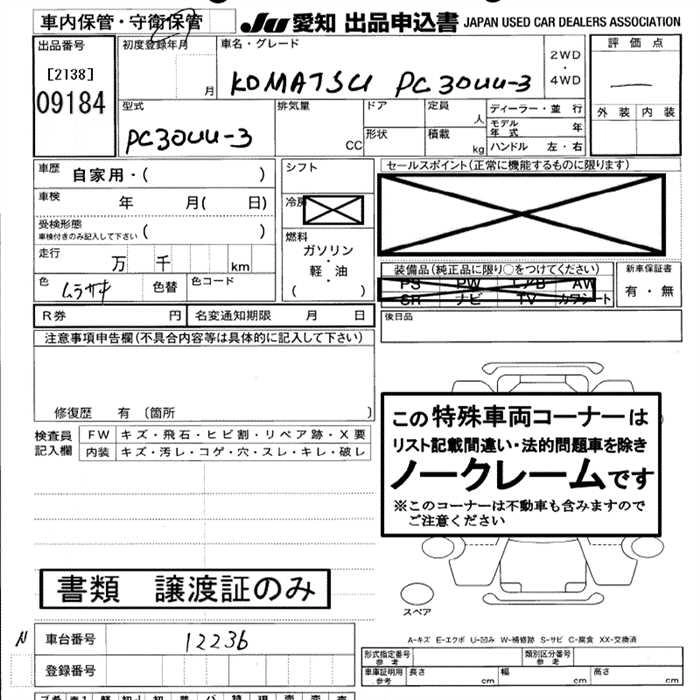 車内保管・守衛保管
JU 愛知 出品申込書 JAPAN USED CAR DEALERS ASSOCIATION
出品番号
[2138]
09184
初度登録年月
月
車名・グレード
KOMATSU PC30UU-3
2WD
・
4WD
評価点
外装 内装
型式
PC30UU-3
排気量
CC
ドア
形状
定員
人
積載
kg
ディーラー・並行
モデル年式 年
ハンドル 左・右
車歴 自家用・( )
車検 年 月( 日)
受検形態
車検付きのみ記入して下さい ( )
走行 万 千 km
色 ムラサキ 色替 色コード
シフト
冷房
燃料
ガソリン
・
軽・油
( )
セールスポイント(正常に機能するものに限ります)
装備品(純正品に限り○をつけてください)
PS PW エアB AW
SR ナビ TV カワシート
新車保証書
有・無
R券 円 名変通知期限 月 日
後日品
注意事項申告欄(不具合内容等は具体的に記入して下さい)
修復歴 有 (箇所 )
検査員記入欄
FW キズ・飛石・ヒビ割・リペア跡・X要
内装 キズ・汚レ・コゲ・穴・スレ・キレ・破レ
この特殊車両コーナーは
リスト記載間違い・法的問題車を除き
ノークレームです
※このコーナーは不動車も含みますので
ご注意ください
書類 譲渡証のみ
スペア
N 車台番号 12236
登録番号
A-キズ E-エクボ U-凹み W-補修跡 S-サビ C-腐食 XX-交換済
形式指定番号 参考
類別区分番号 参考
車庫証明用 参考 長さ 幅 高さ